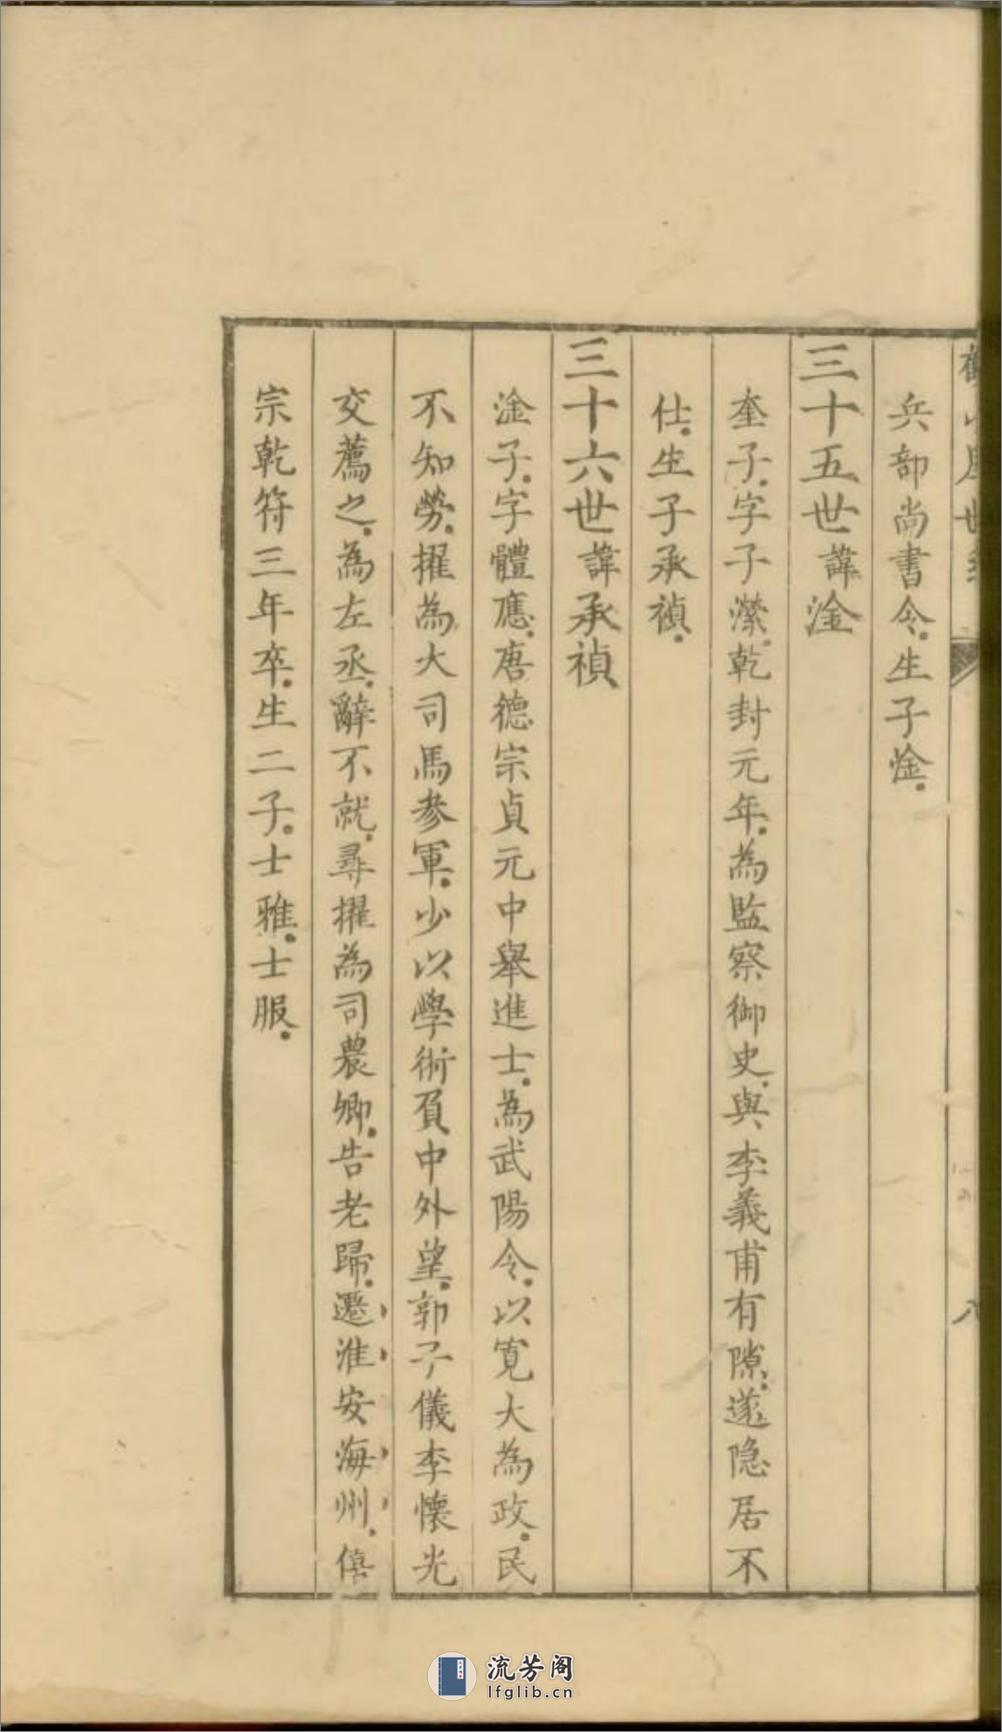 兵部尚書令。生子淦。
三十五世諱淦
奎子。字子瀠。乾封元年。為監察御史。與李義甫有隙。遂隐居不
仕。生子承禎。
三十六世諱承禎
淦子。字體應。唐德宗貞元中舉進士。為武陽令。以寬大為政。民
不知勞。擢為大司馬參軍。少以學術負中外望。郭子儀李懷光
交薦之。為左丞。辭不就。尋擢為司農卿。告老歸。遷淮安海州。僖
宗乾符三年卒。生二子。士雅。士服。
八
流芳阁
lfglib.cn